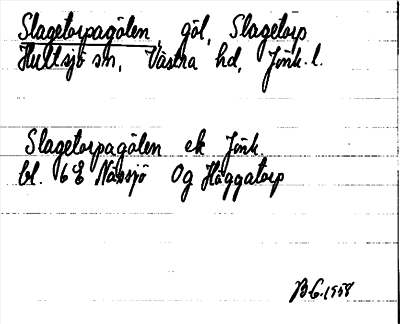 Slagetorpagölen, göl, Slagetorp
Hultsjö sn, Västra hd, Jönk. l.
Slagetorpagölen ek Jönk.
bl. 6E Nässjö Og Häggatorp
BG. 1958